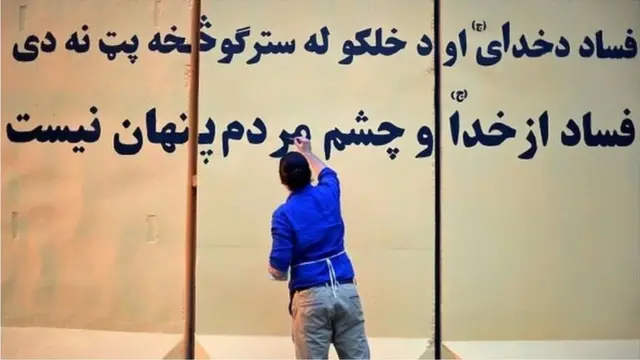 فساد دخدای (ج) او د خلکو له سترگو څخه پټ نه دی
فساد از خدا (ج) و چشم مردم پنهان نیست